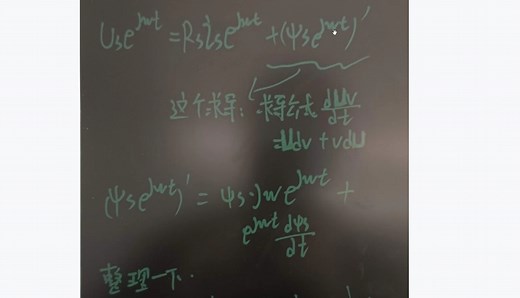 Use^jwt = Rsise^jwt + (ψse^jwt)'
这个求导：求导公式 duv/dt
=udv + vdu
(ψse^jwt)' = ψs·jwe^jwt +
e^jwt dψs/dt
整理一下.